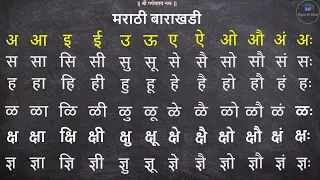 || श्री गणेशाय नमः ||
मराठी बाराखडी
अ आ इ ई उ ऊ ए ऐ ओ औ अं अः
स सा सि सी सु सू से सै सो सौ सं सः
ह हा हि ही हु हू हे है हो हौ हं हः
ळ ळा ळि ळी ळु ळू ळे ळै ळो ळौ ळं ळः
क्ष क्षा क्षि क्षी क्षु क्षू क्षे क्षै क्षो क्षौ क्षं क्षः
ज्ञ ज्ञा ज्ञि ज्ञी ज्ञु ज्ञू ज्ञे ज्ञै ज्ञो ज्ञौ ज्ञं ज्ञः